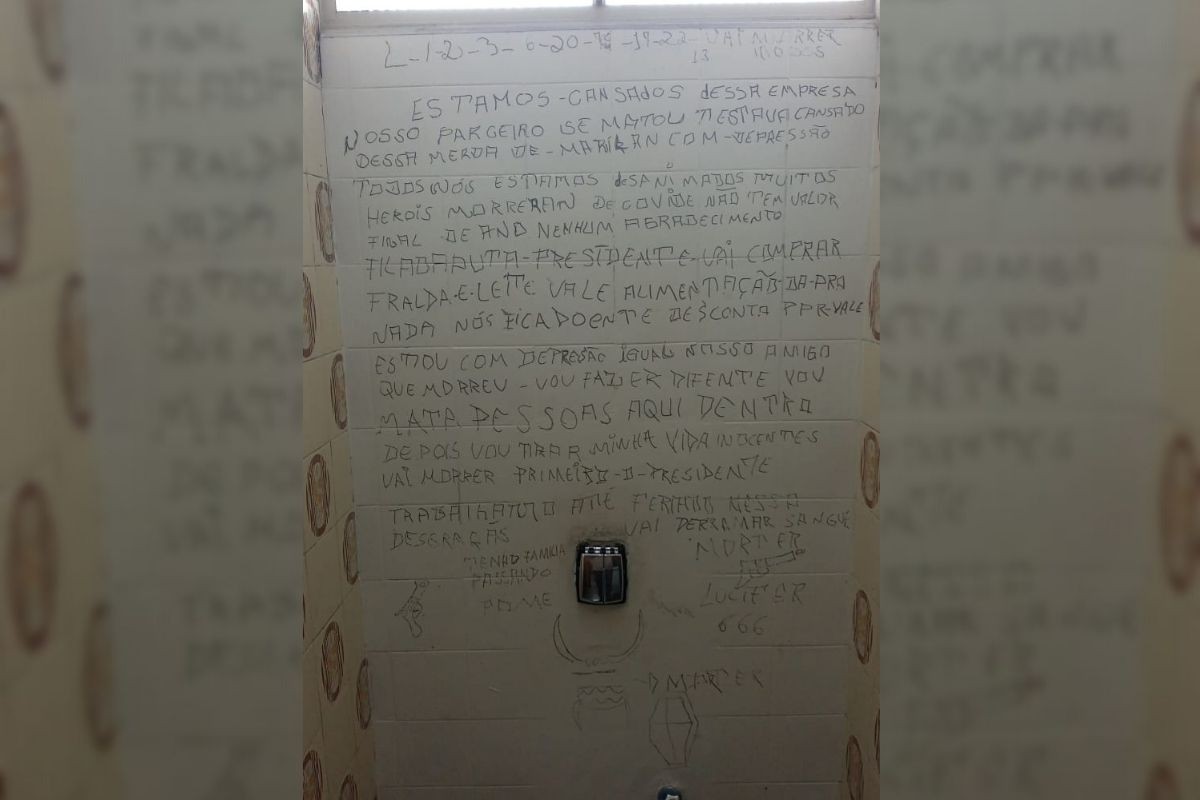 L-1-2-3-6-20- -19-22- VAI MORRER
13 TODOS
ESTAMOS-CANSADOS dESSA EMPRESA
NOSSO PARCEIRO SE MATOU ESTAVA CANSADO
DESSA MERDA DE- COM-DEPRESSÃO
TODOS NÓS ESTAMOS dESANIMADOS MUITOS
HEROIS MORRERAN DE COVIDE NÃO TEM VALOR
FINAL DE ANO NENHUM AGRADECIMENTO
FILADAPUTA-PRESIDENTE-VAI COMPRAR
FRALDA-E-LEITE VALE ALIMENTAÇÃO-DA-PRA
NADA NÓS FICA DOENTE DESCONTA PPR-VALE
ESTOU COM DEPRESÃO IGUAL NOSSO AMIGO
QUE MORREU - VOU FAZER DIFENTE VOU
MATA PESSOAS AQUI DENTRO
DEPOIS VOU TIRAR MINHA VIDA INOCENTES
VAI MORRER PRIMEIRO-O-PRESIDENTE
ATÉ FERIADO NESSA
DESGRAÇAS VAI DERRAMAR SANGUE
TENHO FAMILIA
PASSANDO
FOME
MORTER
LUCIFER
666
MORTER